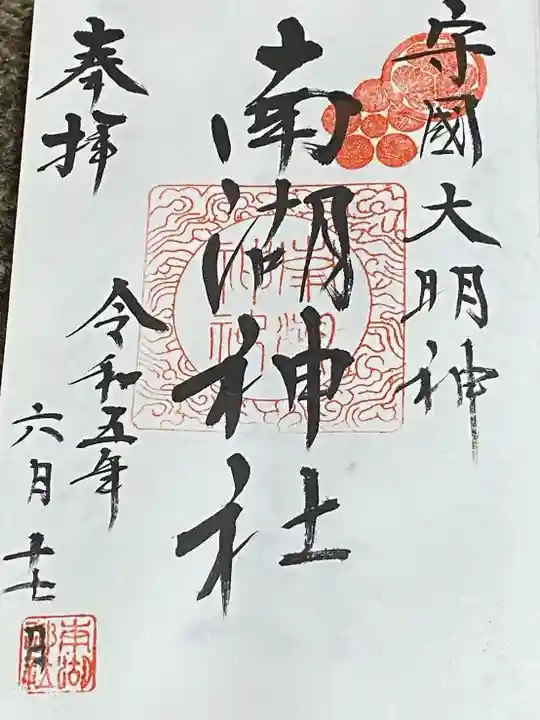 守國大明神
南湖神社
奉拝
令和五年
六月十七日
南湖神社